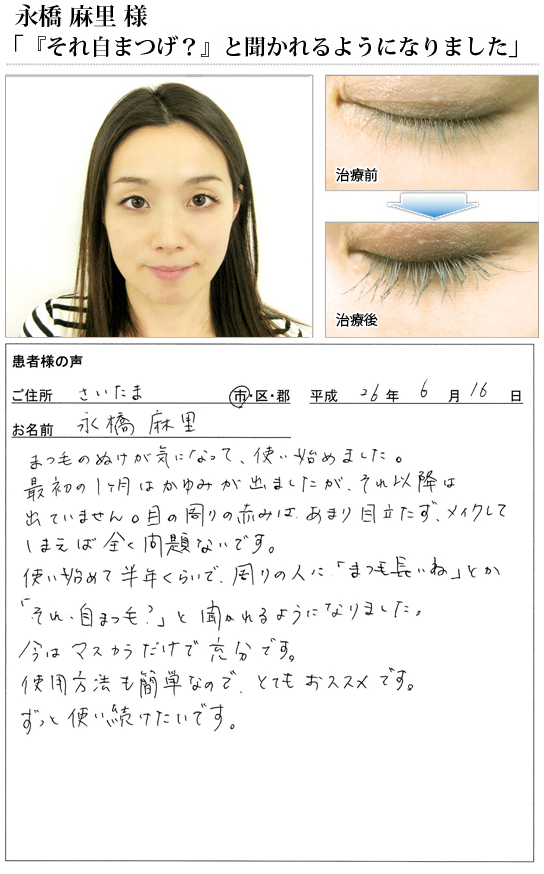 永橋 麻里 様
「『それ自まつげ？』と聞かれるようになりました」
治療前
治療後
患者様の声
ご住所 さいたま 市・区・郡 平成 26 年 6 月 16 日
お名前 永橋 麻里
まつ毛のぬけが気になって、使い始めました。
最初の1ヶ月はかゆみが出ましたが、それ以降は
出ていません。目の周りの赤みは、あまり目立たず、メイクして
しまえば全く問題ないです。
使い始めて半年くらいで、周りの人に「まつ毛長いね」とか
「それ、自まつ毛？」と聞かれるようになりました。
今はマスカラだけで充分です。
使用方法も簡単なので、とてもおススメです。
ずっと使い続けたいです。